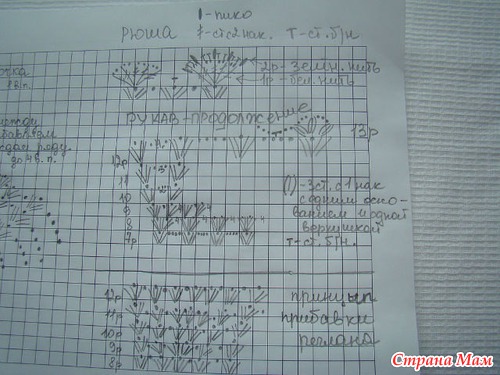 1-пико
РЮША 1-ст.с2нак. Т-ст.б/н
2р-зелен. нить
1р-бел. нить
РУКАВ-ПРОДОЛЖЕНИЕ
13р
12р
11
10
9
8
7р
-3ст. с 1нак
с одним осно-
ванием и одной
вершинкой
т-ст. б/н.
12р
11р
10р
9р
8р
принцып
прибавки
реглана
Страна Мам